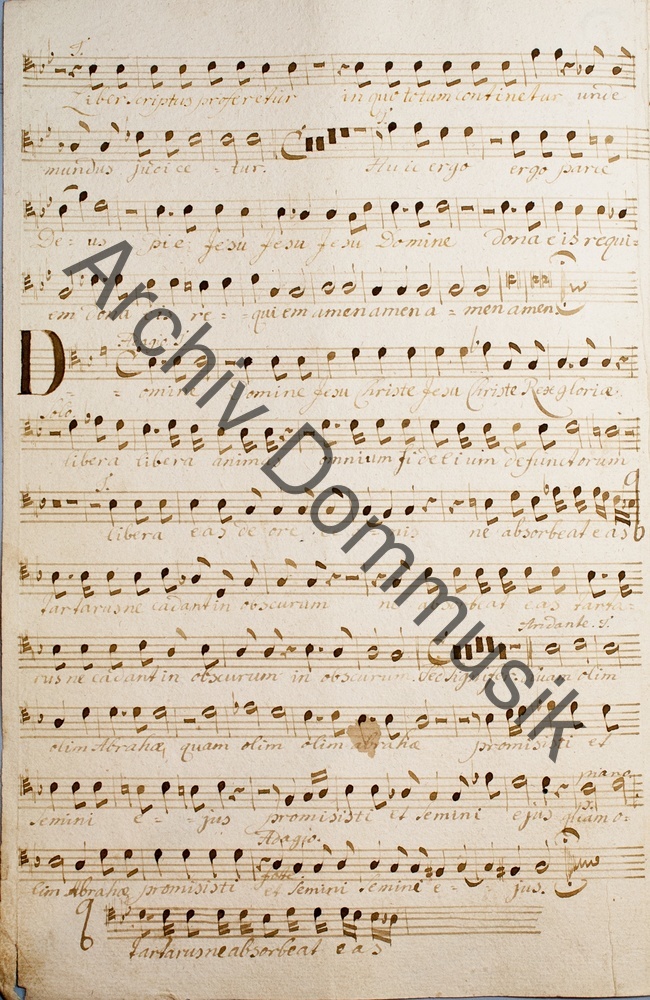 T.
Liber scriptus proferetur in quo totum continetur unde
mundus judice - tur. T. Huic ergo ergo parce
De - us pie Jesu Jesu Jesu Domine dona eis requi-
em dona eis re - quiem amen amen a - men amen.
Adagio. T.
D omine Domine Jesu Christe Jesu Christe Rex gloriæ.
Solo.
libera libera animas omnium fidelium defunctorum
T.
libera eas de ore ne absorbeat eas
tartarus ne cadant in obscurum ne absorbeat eas tarta-
Andante. T.
rus ne cadant in obscurum in obscurum. Sed signifer. quam olim
olim Abrahæ quam olim olim abrahæ promisisti et
piano
semini e - jus promisisti et semini ejus quam o-
Adagio.
lim Abrahæ promisisti et semini semini e - jus.
tartarus ne absorbeat eas
Archiv Dommusik